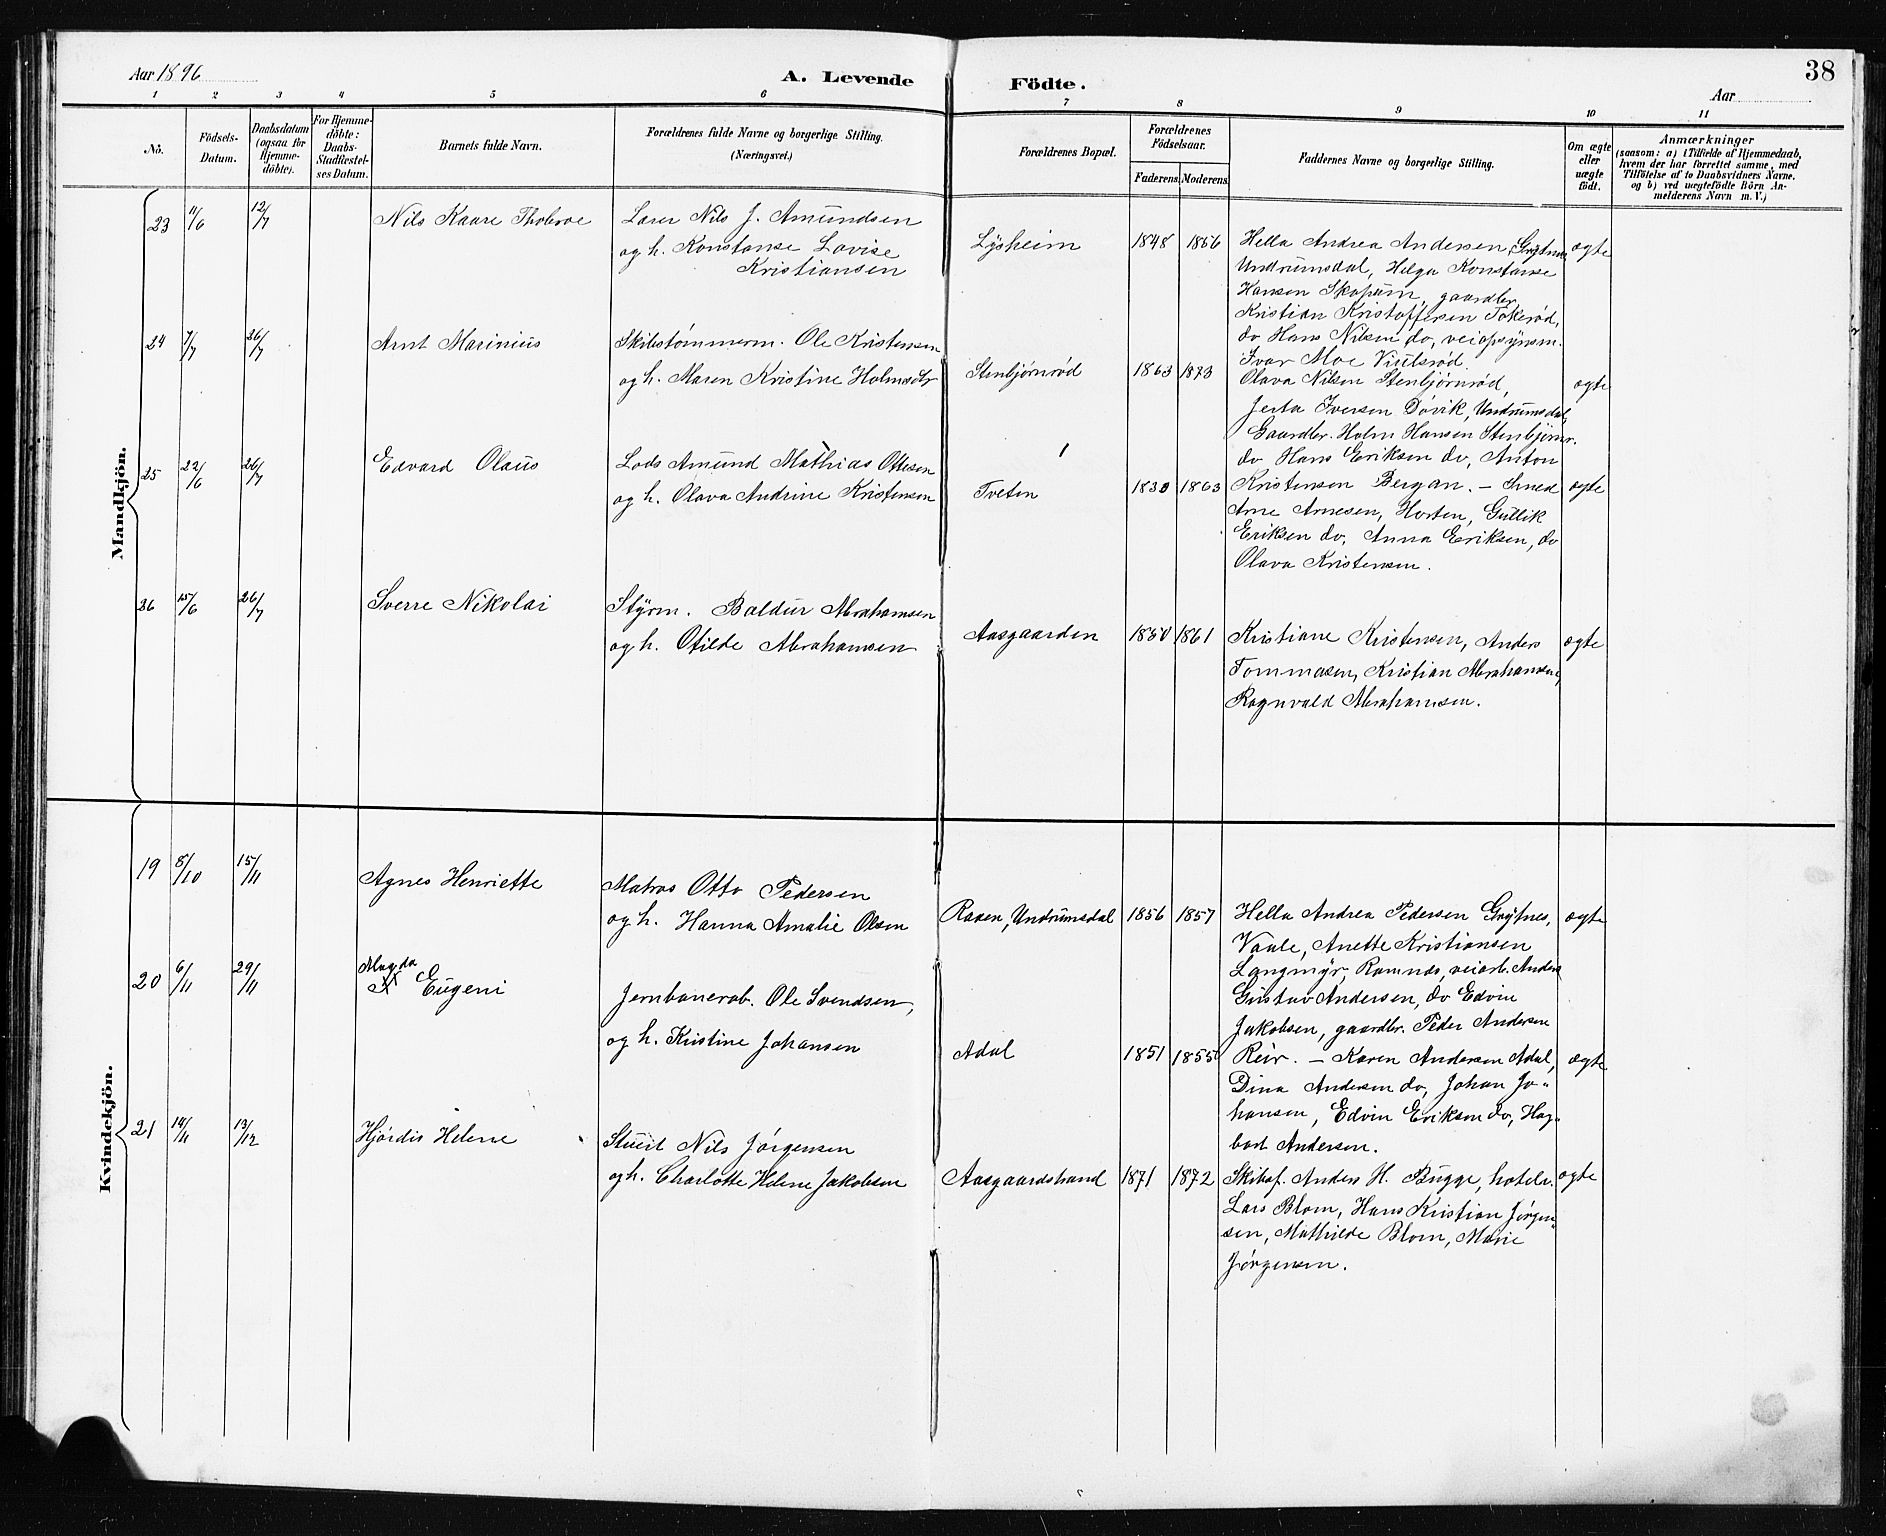 Aar 1896
A. Levende Födte.
38
Aar
1 2 3 4 5 6 7 8 9 10 11
No.
Födsels-Datum.
Daabsdatum (ogsaa for Hjemme-döbte).
For Hjemme-döbte: Daabs-Stadfæstel-ses Datum.
Barnets fulde Navn.
Forældrenes fulde Navne og borgerlige Stilling. (Næringsvei.)
Forældrenes Bopæl.
Forældrenes Födselsaar.
Faderens. Moderens.
Faddernes Navne og borgerlige Stilling.
Om ægte eller uægte födt.
Anmærkninger
(saasom: a) i Tilfælde af Hjemmedaab,
hvem der har forrettet samme, med
Tilföielse af to Daabsvidners Navne,
og b) ved uægtefödte Börn An-
melderens Navn m. V.)
Mandkjön.
23 11/6 12/7 Nils Kaare Tholvoe
Lærer Nils J. Amundsen
og h. Konstanse Lovise
Kristiansen
Lysheim 1848 1856
Hella Andrea Andersen, Grytnes
Undrumsdal, Helga Konstanse
Hansen Skopum, gaardbr.
Kristian Kristoffersen Tokerød,
do Hans Nilsen do, veiopsynsm.
Ivar Moe Viulsrød.
ægte
24 7/7 26/7 Arnt Marinius
Skibstømmerm. Ole Kristensen
og h. Maren Kristine Holmsdtr
Stenbjørnrød 1863 1873
Olava Nilsen Stenbjørnrød,
Jerta Iversen Døvik, Undrumsdal,
Gaardbr. Holm Hansen Stenbjørnr.
do Hans Eriksen do, Anton
Kristensen Bergan. –
ægte
25 22/6 26/7 Edvard Olaus
Lods Amund Mathias Ottesen
og h. Olava Andrine Kristensen
Tveten 1830 1863
Smed
Arne Arnesen, Horten, Gullik
Eriksen do, Anna Eriksen, do
Olava Kristensen.
ægte
26 15/6 26/7 Sverre Nikolai
Styrm. Baldur Abrahamsen
og h. Otilde Abrahamsen
Aasgaarden 1850 1861
Kristiane Kristensen, Anders
Tommasen, Kristian Abrahamsen,
Ragnvald Abrahamsen.
ægte
Kvindekjön.
19 8/10 15/11 Agnes Henriette
Matros Otto Pedersen
og h. Hanna Amalie Olsen
Raaen, Undrumsdal 1856 1857
Hella Andrea Pedersen Grytnes,
Vaale, Anette Kristiansen
Langmyr, Ramnes, veiarb. Anders
Gustav Andersen, do Edvin
Jakobsen, gaardbr. Peder Andersen
Reir. –
ægte
20 6/11 29/11 Magda
Eugeni
Jernbanearb. Ole Svendsen,
og h. Kristine Johansen
Adal 1851 1855
Karen Andersen Adal,
Dina Andersen do, Johan Jo-
hansen, Edvin Eriksen do, Hag-
bart Andersen.
ægte
21 14/11 13/12 Hjørdis Helene
Stuert Nils Jørgensen
og h. Charlotte Helene Jakobsen
Aasgaardstrand 1871 1872
Skibsf. Anders H. Bugge, hotelv.
Lars Blom, Hans Kristian Jørgen-
sen, Mathilde Blom, Marie
Jørgensen.
ægte